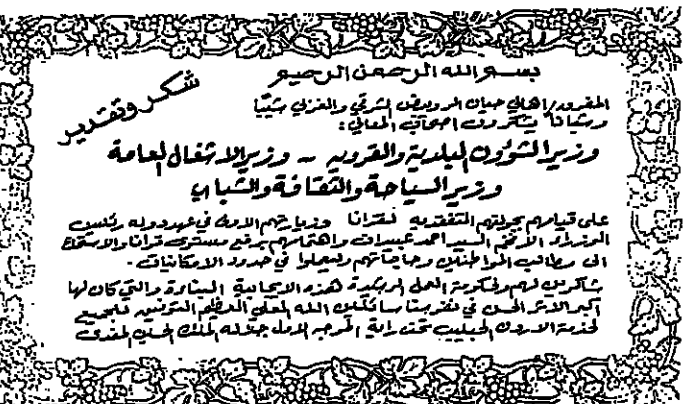 بسم الله الرحمن الرحيم
شكر وتقدير
أهالي جبال الرويض الشرقي والغربي شيبًا
وشبانًا يشكرون اصحاب المعالي:
وزير الشؤون البلدية والقروية -- وزير الاشغال العامة
وزير السياحة والثقافة والشباب
على قيامهم بجولتهم التفقدية لقرانا وزيارتهم الاولى في عهد دولة رئيس
الوزراء الافخم السيد احمد عبيدات واهتمامهم برفع مستوى قرانا والاستماع
الى مطالب المواطنين وحاجاتهم وليعملوا في حدود الامكانيات -
شاكرين لهم ولحكومة العمل الرشيدة هذه الايجابية البناءة والتي كان لها
اكبر الاثر الحسن في نفوسنا سائلين الله العلي العظيم التوفيق للجميع
لخدمة الاردن الحبيب تحت راية الموجه الاول جلالة الملك الحسين المفدى